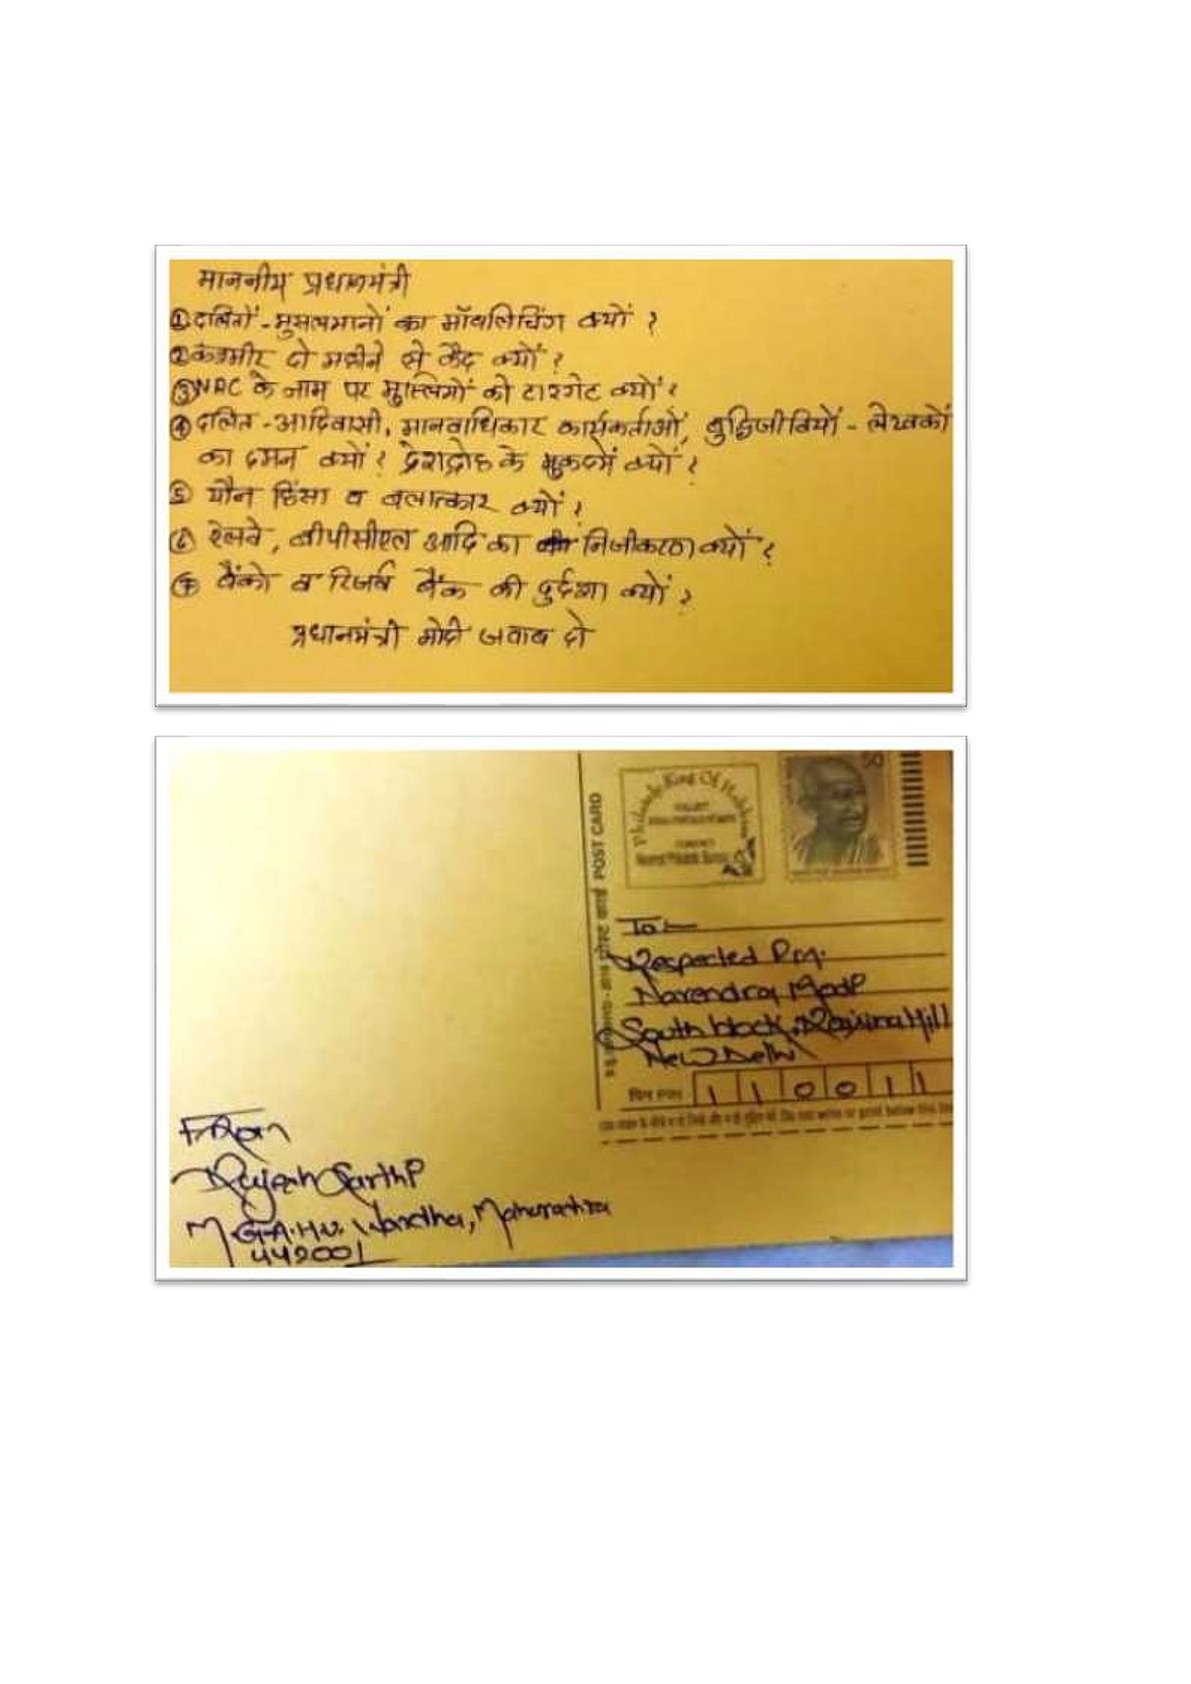 माननीय प्रधानमंत्री
① दलितों - मुसलमानों का मॉबलिचिंग क्यों ?
② कश्मीर दो महीने से कैद क्यों ?
③ NRC के नाम पर मुस्लिमों को टारगेट क्यों ?
④ दलित - आदिवासी, मानवाधिकार कार्यकर्ताओं, बुद्धिजीवियों - लेखकों
का दमन क्यों ? देशद्रोह के मुकदमें क्यों ?
⑤ यौन हिंसा व बलात्कार क्यों ?
⑥ रेलवे, बीपीसीएल आदि का निजीकरण क्यों ?
⑦ बैंको व रिजर्व बैंक की दुर्दशा क्यों ?
प्रधानमंत्री मोदी जवाब दो
पोस्ट कार्ड POST CARD
50
To :-
Respected P.M.
Narendra Modi
South block, Raisina Hill
New Delhi
पिन PIN
110011
From
Rajesh Sarthi
M.G.A.H.V. Wardha, Maharashtra
442001